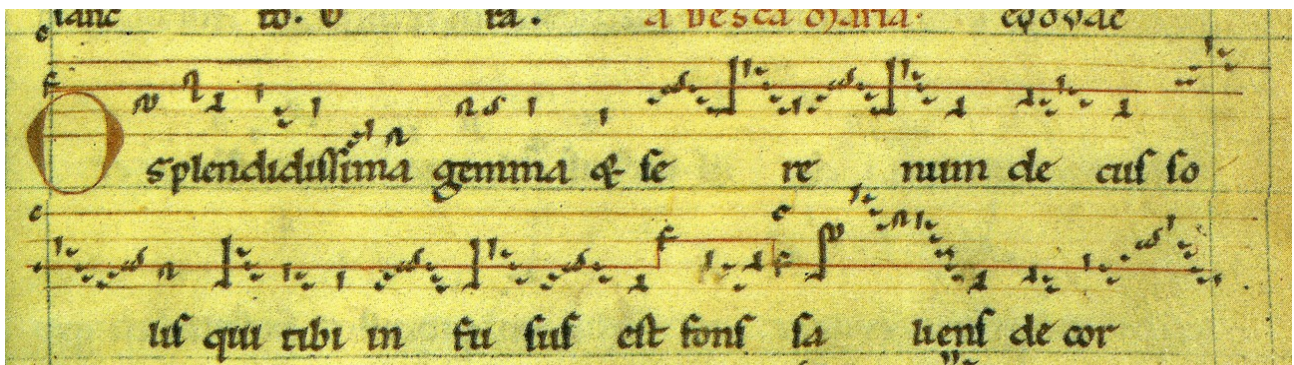 to. V ra. A UESCA MARIA. EVOVAE
O splendidissima gemma & se re num de cus so
lis qui tibi in fu sus est fons sa liens de cor